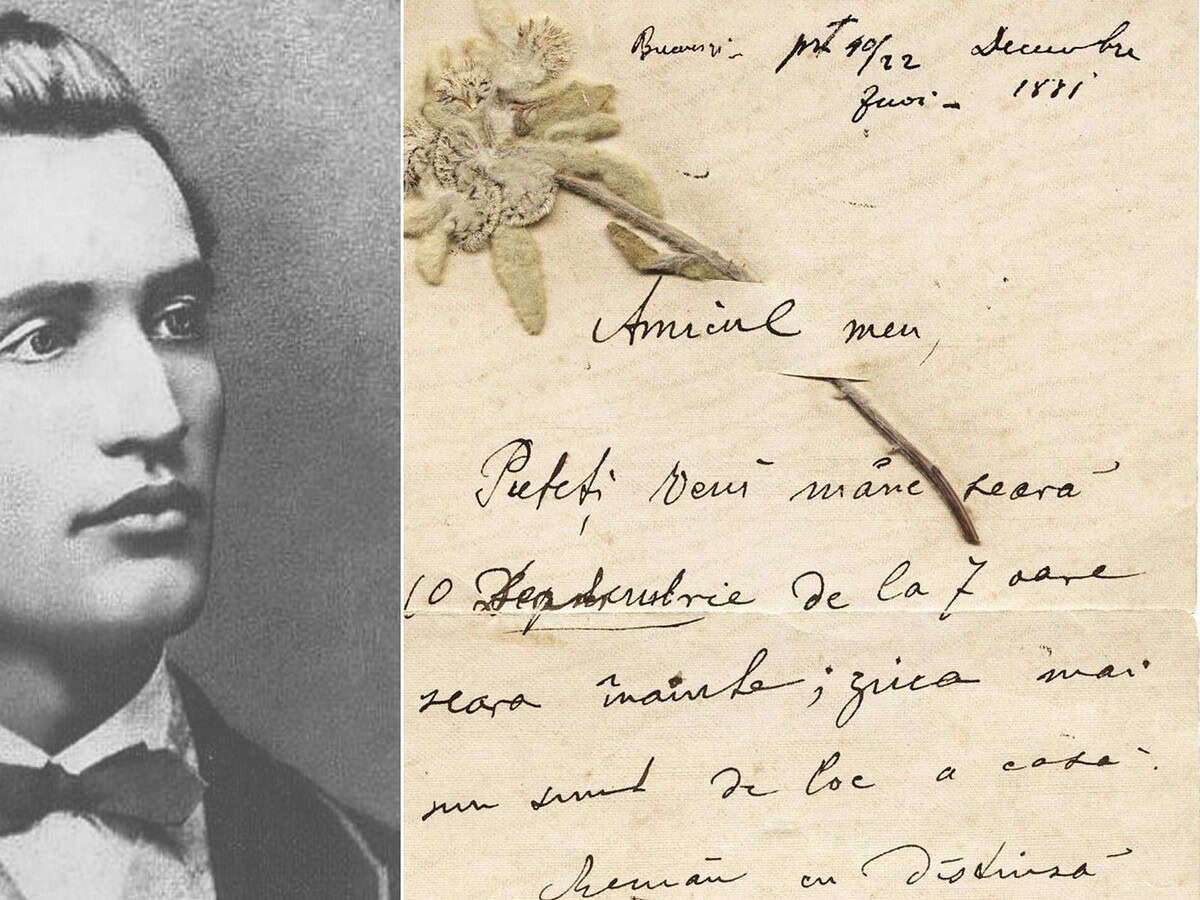 10/22 Decembre
Juoi - 1881
Amicul meu,
Puteți veni mâne seară
10 de la 7 oare
seara înainte; ziua mai
nu sunt de loc a casă.
Remân cu distinsă